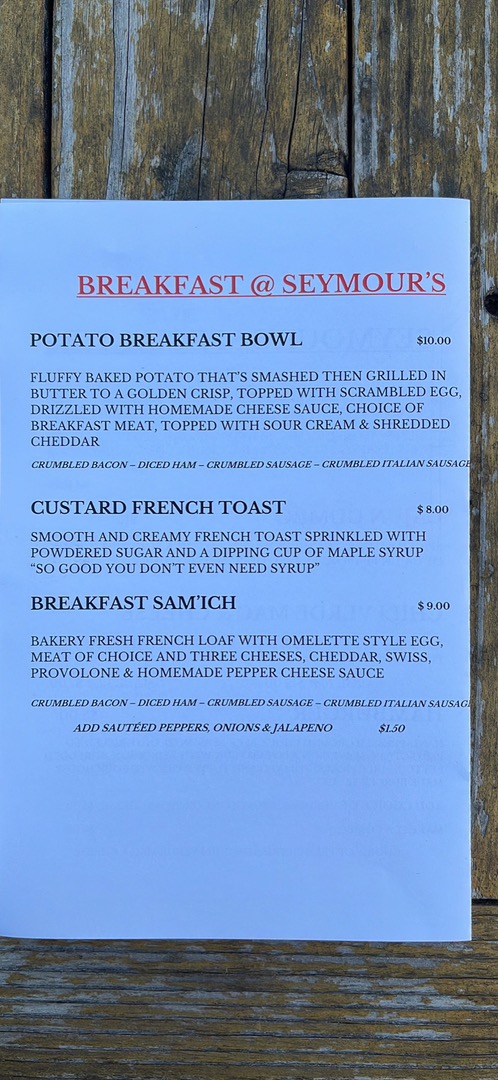 BREAKFAST @ SEYMOUR'S
POTATO BREAKFAST BOWL $10.00
FLUFFY BAKED POTATO THAT'S SMASHED THEN GRILLED IN
BUTTER TO A GOLDEN CRISP, TOPPED WITH SCRAMBLED EGG,
DRIZZLED WITH HOMEMADE CHEESE SAUCE, CHOICE OF
BREAKFAST MEAT, TOPPED WITH SOUR CREAM & SHREDDED
CHEDDAR
CRUMBLED BACON – DICED HAM – CRUMBLED SAUSAGE – CRUMBLED ITALIAN SAUSAGE
CUSTARD FRENCH TOAST $ 8.00
SMOOTH AND CREAMY FRENCH TOAST SPRINKLED WITH
POWDERED SUGAR AND A DIPPING CUP OF MAPLE SYRUP
"SO GOOD YOU DON'T EVEN NEED SYRUP"
BREAKFAST SAM'ICH $ 9.00
BAKERY FRESH FRENCH LOAF WITH OMELETTE STYLE EGG,
MEAT OF CHOICE AND THREE CHEESES, CHEDDAR, SWISS,
PROVOLONE & HOMEMADE PEPPER CHEESE SAUCE
CRUMBLED BACON – DICED HAM – CRUMBLED SAUSAGE – CRUMBLED ITALIAN SAUSAG
ADD SAUTÉED PEPPERS, ONIONS & JALAPENO $1.50